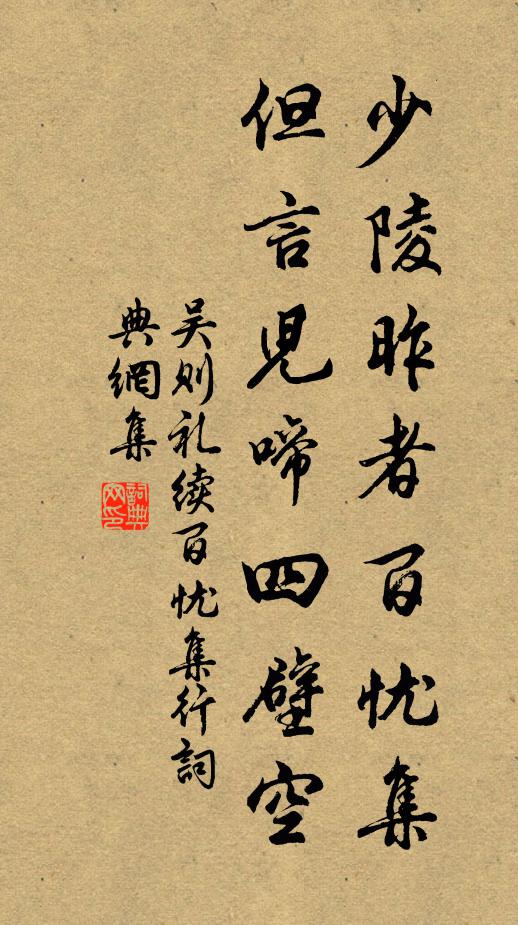 少陵昨者百忧集
但言児啼四壁空
吴则礼续百忧集行詞
典網集
詞典网印